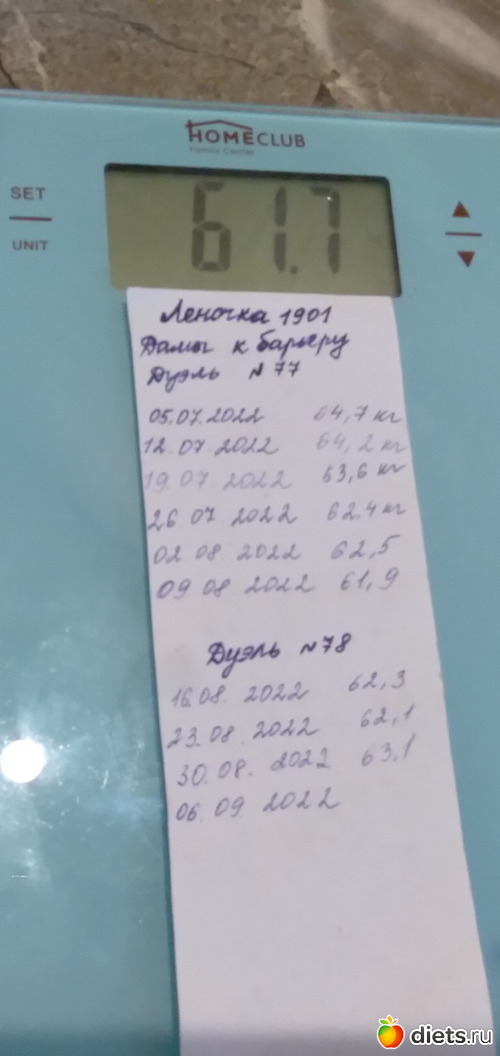 HOMECLUB
Family Center
SET
UNIT
61.7
Леночка 1901
Дамы к барьеру
Дуэль №77
05.07.2022 64,7 кг
12.07.2022 64,2 кг
19.07.2022 63,6 кг
26 07 2022 62.4 кг
02 08 2022 62,5
09 08 2022 61,9
Дуэль №78
16.08. 2022 62,3
23.08. 2022 62,1
30.08. 2022 63,1
06.09 2022
diets.ru